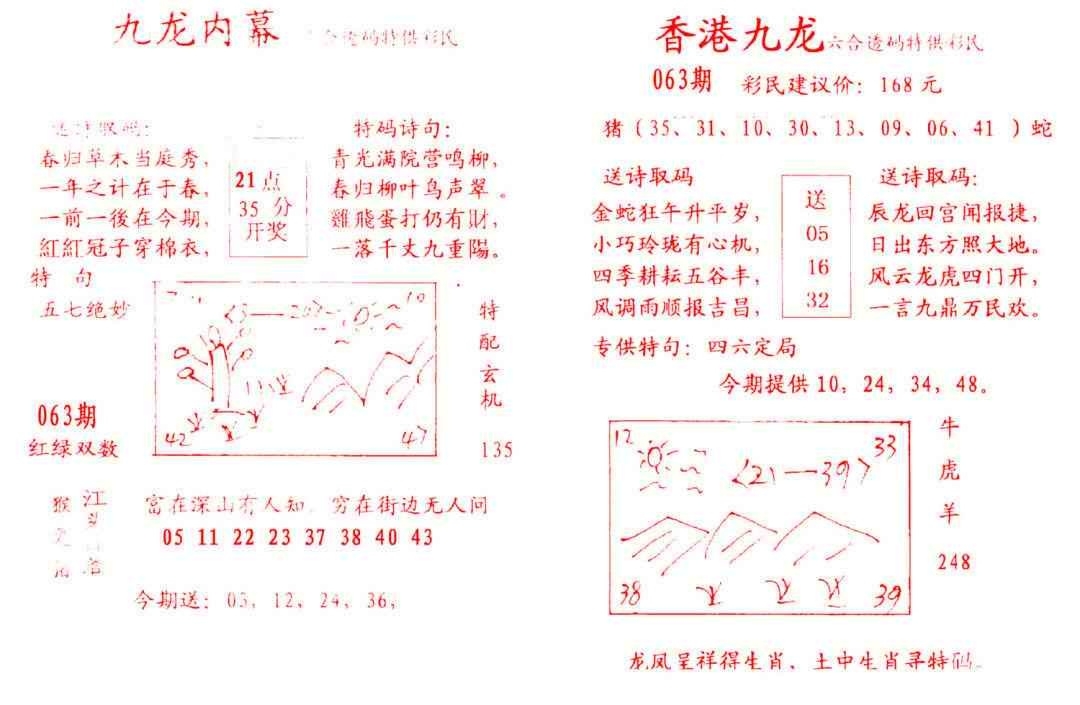 九龙内幕 合透码特供彩民
送诗取码:
春归草木当庭秀,
一年之计在于春,
一前一後在今期,
紅紅冠子穿棉衣,
21点
35分
开奖
特码诗句:
青光满院营鸣柳,
春归柳叶鸟声翠。
雞飛蛋打仍有財,
一落千丈九重陽。
特 句
五七绝妙
063期
红绿双数
<3——20>
10
42
47
特
配
玄
机
135
猴
江
富在深山有人知,穷在街边无人问
05 11 22 23 37 38 40 43
今期送: 03, 12, 24, 36,
香港九龙六合透码特供彩民
063期 彩民建议价: 168元
猪(35、31、10、30、13、09、06、41 )蛇
送诗取码
金蛇狂午升平岁,
小巧玲珑有心机,
四季耕耘五谷丰,
风调雨顺报吉昌,
送
05
16
32
送诗取码:
辰龙回宫闻报捷,
日出东方照大地。
风云龙虎四门开,
一言九鼎万民欢。
专供特句: 四六定局
今期提供10, 24, 34, 48。
12
33
<21—39>
38
39
牛
虎
羊
248
龙凤呈祥得生肖、土中生肖寻特码。